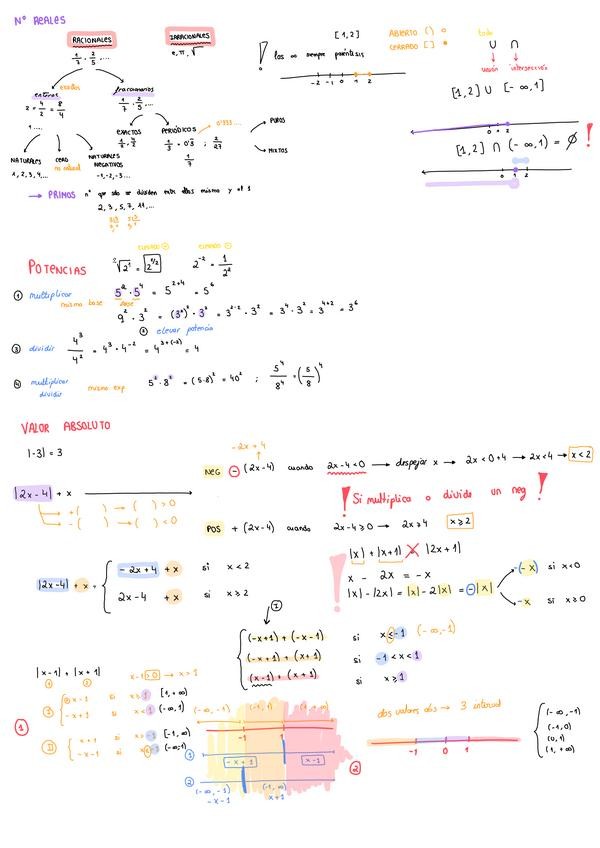 Nº REALES
RACIONALES
1/3, 2/5, ...
IRRACIONALES
e, π, √
exactos
enteros
2 = 4/2 = 8/4
1, ...
fraccionarios
1/7, 2/5, ...
NATURALES
1, 2, 3, 4, ...
CERO
no natural
NATURALES NEGATIVOS
-1, -2, -3 ...
EXACTOS
PERIÓDICOS
0'333...
2/27
1/7
PUROS
MIXTOS
→ PRIMOS nº que solo se dividen entre ellos mismo y el 1
2, 3, 5, 7, 11, ...
! los ∞ siempre paréntesis
[1, 2]
-2 -1 0 1 2
ABIERTO ( ) o
CERRADO [ ] •
todo
∪ ∩
unión intersección
[1, 2] ∪ [-∞, 1)
0 1 2
[1, 2] ∩ (-∞, 1) = ∅ !
0 1 2
POTENCIAS
2^-2 = 1/2^2
① multiplicar
misma base
base
5^2 · 5^4 = 5^(2+4) = 5^6
9^2 · 3^2 = (3^2)^2 · 3^2 = 3^(2·2) · 3^2 = 3^4 · 3^2 = 3^(4+2) = 3^6
② elevar potencia
③ dividir
4^3/4^2 = 4^3 · 4^-2 = 4^(3+(-2)) = 4
④ multiplicar
dividir
mismo exp
5^2 · 8^2 = (5·8)^2 = 40^2 ; 5^4/8^4 = (5/8)^4
VALOR ABSOLUTO
|-3| = 3
-2x + 4
NEG - (2x-4) cuando 2x-4 < 0 → despejar x → 2x < 0+4 → 2x < 4 → x < 2
|2x - 4| + x
+ ( ) → ( ) > 0
- ( ) → ( ) < 0
! Si multiplica o divide un neg !
POS + (2x-4) cuando 2x-4 ≥ 0 → 2x ≥ 4 x ≥ 2
|2x-4| + x =
-2x+4 + x si x < 2
2x-4 + x si x ≥ 2
! |x| + |x+1| |2x+1|
x - 2x = -x
|x| - |2x| = |x| - 2|x| = -|x|
-(-x) si x < 0
-x si x ≥ 0
①
(-x+1) + (-x-1) si x < -1 (-∞, -1)
(-x+1) + (x+1) si -1 < x < 1
(x-1) + (x+1) si x ≥ 1
|x-1| + |x+1|
① ②
x-1 > 0 → x > 1
x-1 si x ≥ 1 [1, +∞)
-x+1 si x < 1 (-∞, 1)
①
x+1 si x ≥ -1 [-1, ∞)
-x-1 si x < -1 (-∞, -1)
(-∞, -1) (-1, 1) (1, +∞)
-1 1
① -x+1 x-1
②
(-∞, -1) (-1, ∞)
-x-1 x+1
dos valores abs → 3 interval
②
-1 0 1
(-∞, -1)
(-1, 0)
(0, 1)
(1, +∞)